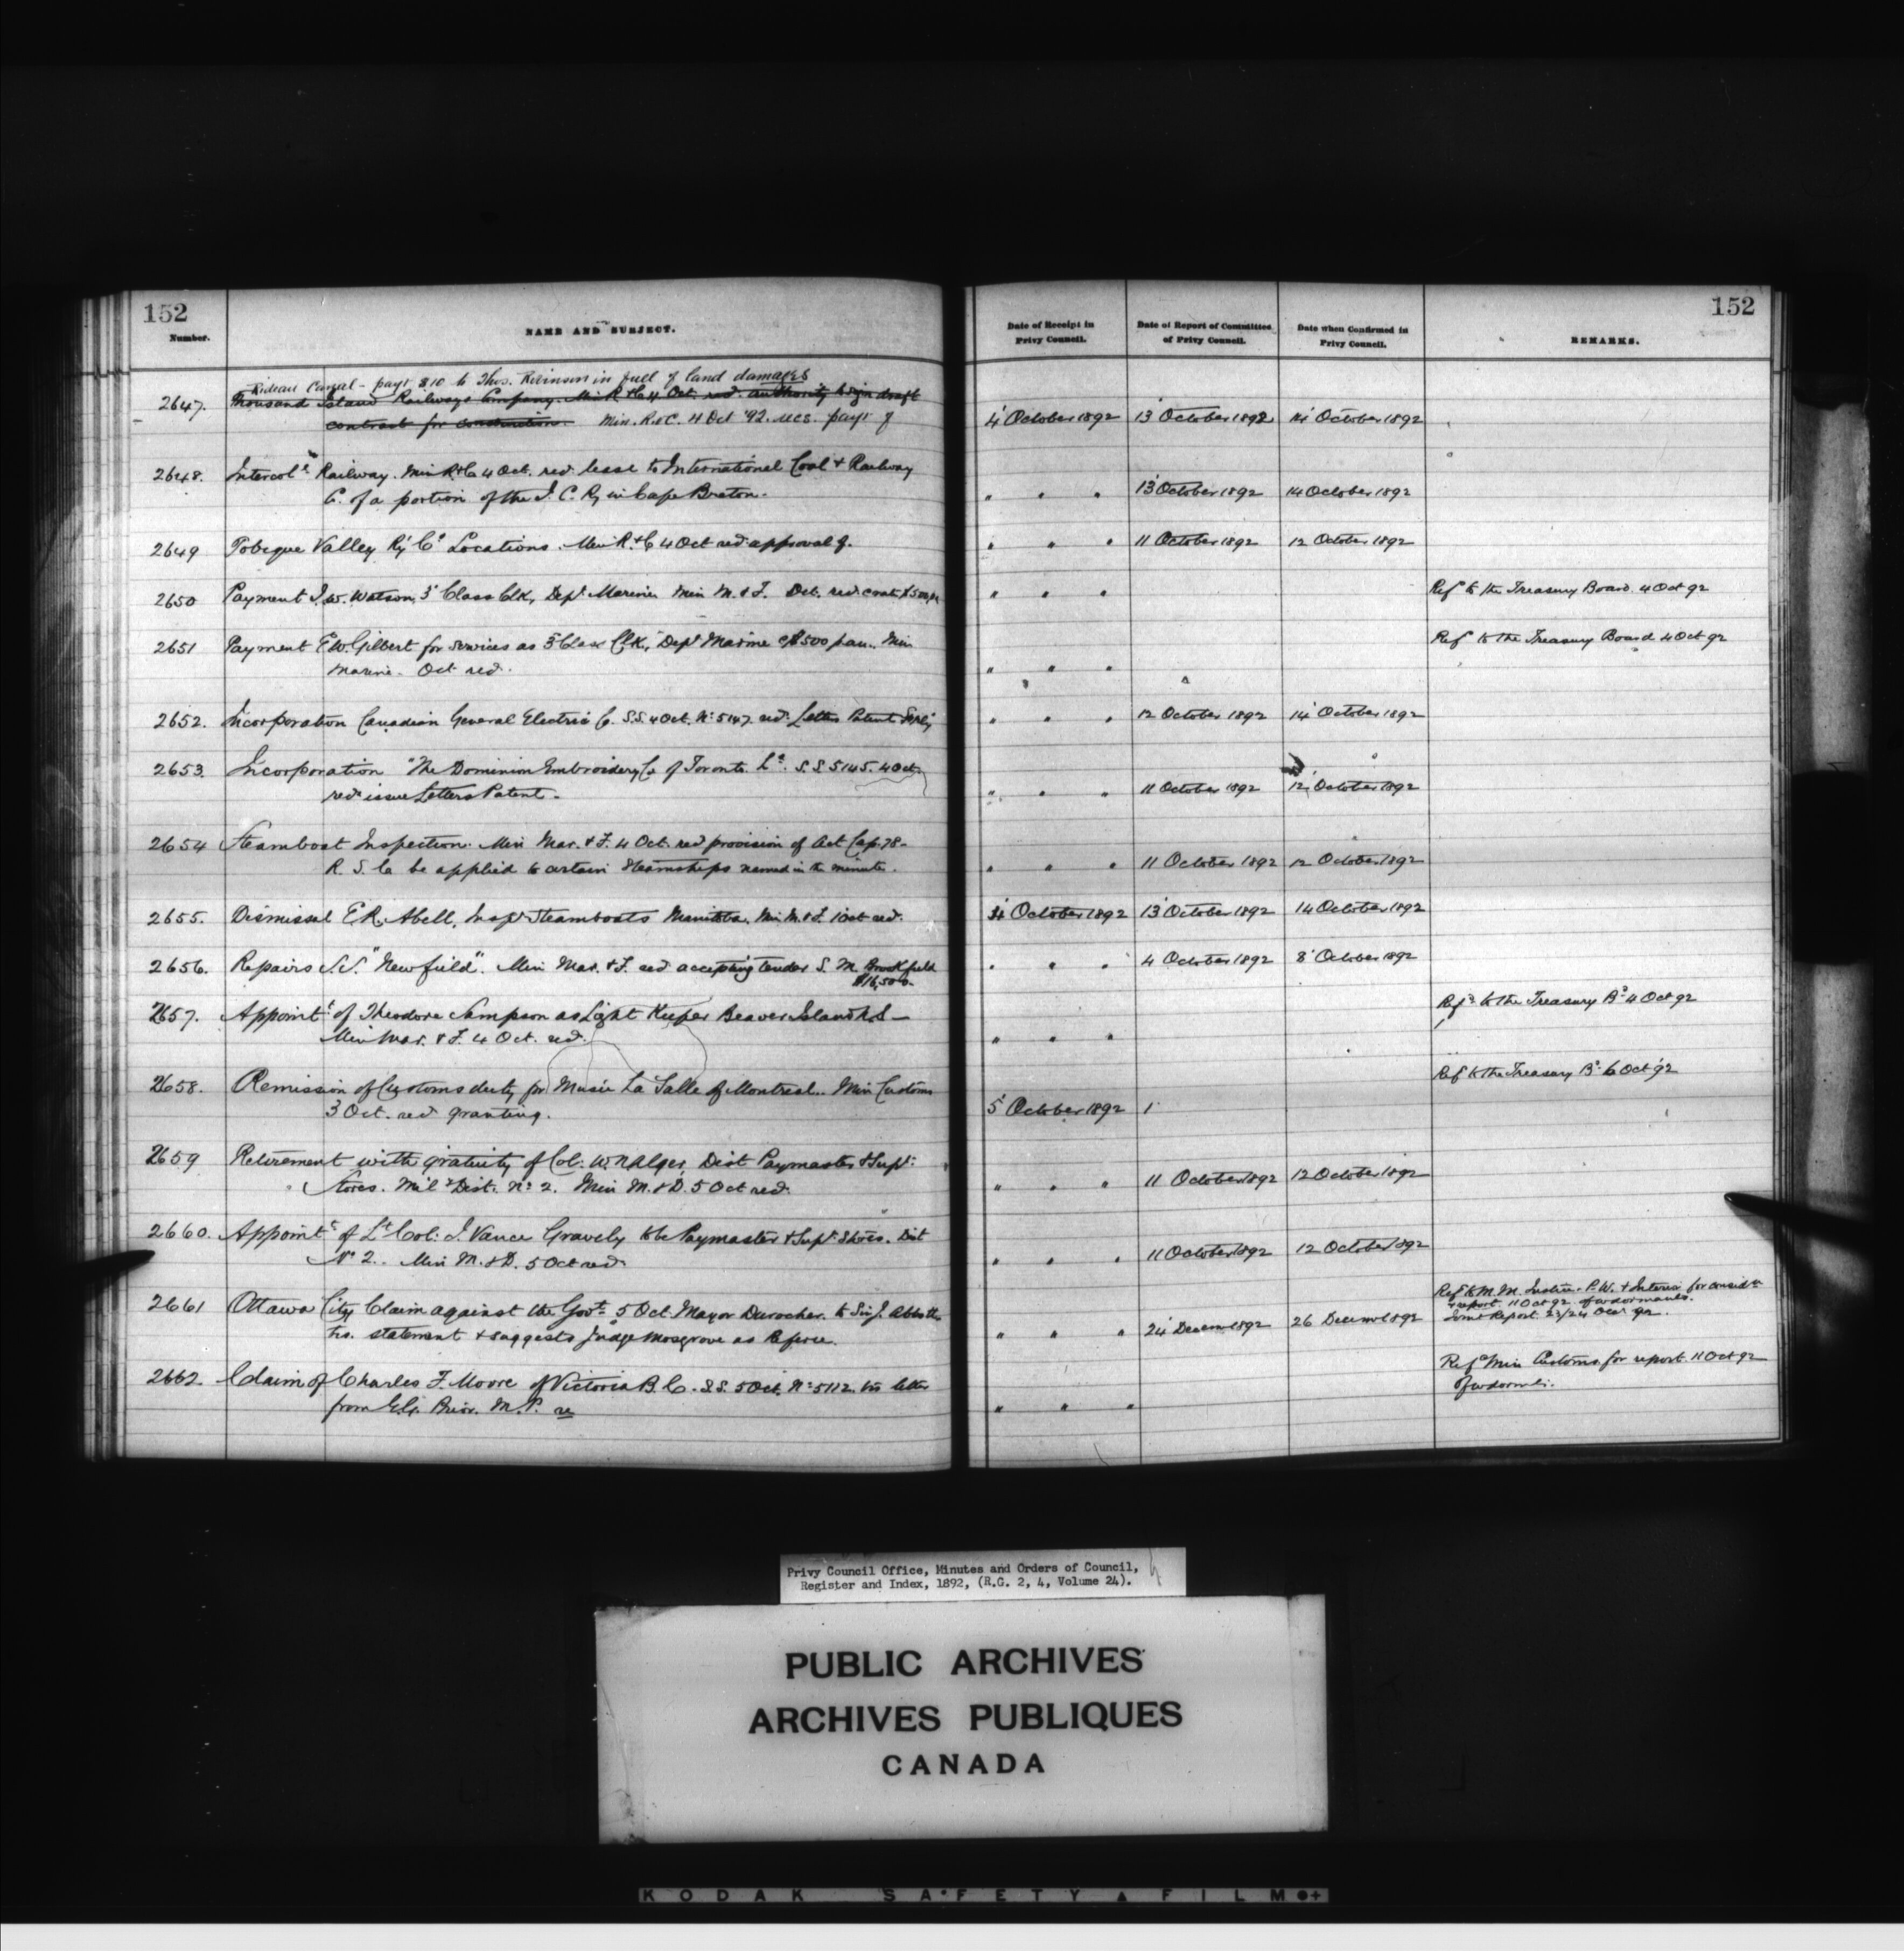 152
Number.
NAME AND SUBJECT.
Date of Receipt in Privy Council.
Date of Report of Committee of Privy Council.
Date when Confirmed in Privy Council.
REMARKS.
152
Rideau Canal - payt $10 to Thos. Robinson in full of land damages
2647. Thousand Island Railways Company. Min R & C 4 Oct. red. authority to sign draft
contract for construction. Min. R. & C. 4 Oct '92. recs. payt of
4 October 1892 13 October 1892 14 October 1892
2648. Intercol Railway. Min R & C 4 Oct. red. lease to International Coal & Railway
C. of a portion of the I. C. Ry in Cape Breton.
" " " 13 October 1892 14 October 1892
2649 Tobique Valley Ry Co Locations. Min R. & C 4 Oct red approval of.
" " " 11 October 1892 12 October 1892
2650 Payment J. W. Watson, 3 Class Clk, Dept Marine Min M. & F. Oct. red.
" " " Ref to the Treasury Board. 4 Oct 92
2651 Payment E W. Gilbert for services as 3 Class Clk, Dept Marine @ $500 p an. Min
Marine. Oct red.
" " " Ref to the Treasury Board 4 Oct 92
2652. Incorporation Canadian General Electric Co. S.S. 4 Oct. No 5147 red. Letters Patent
" " " 12 October 1892 14 October 1892
2653. Incorporation "The Dominion Embroidery Co of Toronto. Ld. S.S. 5145. 4 Oct.
red issue Letters Patent.
" " " 11 October 1892 12 October 1892
2654 Steamboat Inspection. Min Mar. & F. 4 Oct. red provision of Act Cap. 78
R. S. C. be applied to certain Steamships named in the minute.
" " " 11 October 1892 12 October 1892
2655. Dismissal E R. Abell, Inspr Steamboats Manitoba. Min. M. & F. 1 Oct red.
4 October 1892 13 October 1892 14 October 1892
2656. Repairs S.S. "Newfield". Min Mar. & F. red accepting tender S. M. Brookfield
$16,500.
" " " 4 October 1892 8 October 1892
2657. Appoint of Theodore Sampson as Light Keeper Beaver Island N.S
Min Mar. & F. 4 Oct. red.
" " " Refd to the Treasury Bd 4 Oct 92
2658. Remission of Customs duty for Music La Salle of Montreal. Min Customs
3 Oct. red granting.
5 October 1892 Ref to the Treasury Bd 6 Oct '92
2659 Retirement with gratuity of Col: W. N Alger, Dist Paymaster & Supt:
Stores. Mil Dist. No 2. Min M. & D. 5 Oct red.
" " " 11 October 1892 12 October 1892
2660. Appoint of Lt Col: J. Vance Gravely to be Paymaster & Supt Stores. Dist
No 2. Min M. & D. 5 Oct red.
" " " 11 October 1892 12 October 1892
2661 Ottawa City Claim against the Govt 5 Oct. Mayor Durocher to Sir J. Abbott
trs. statement & suggests Judge Mosgrove as Referee.
" " " 24 Decem 1892 26 Decem 1892
Ref to M. M. Justice. P. W. & Interior for consid
& report. 11 Oct 92
Joint Report 23/24 Decr 92.
2662. Claim of Charles F. Moore of Victoria B. C. S.S. 5 Oct. No 5112. trs letter
from E. G. Prior. M. P. re
" " " Refd Min Customs for report. 11 Oct 92
Privy Council Office, Minutes and Orders of Council,
Register and Index, 1892, (R.G. 2, 4, Volume 24).
PUBLIC ARCHIVES
ARCHIVES PUBLIQUES
CANADA
KODAK SAFETY FILM